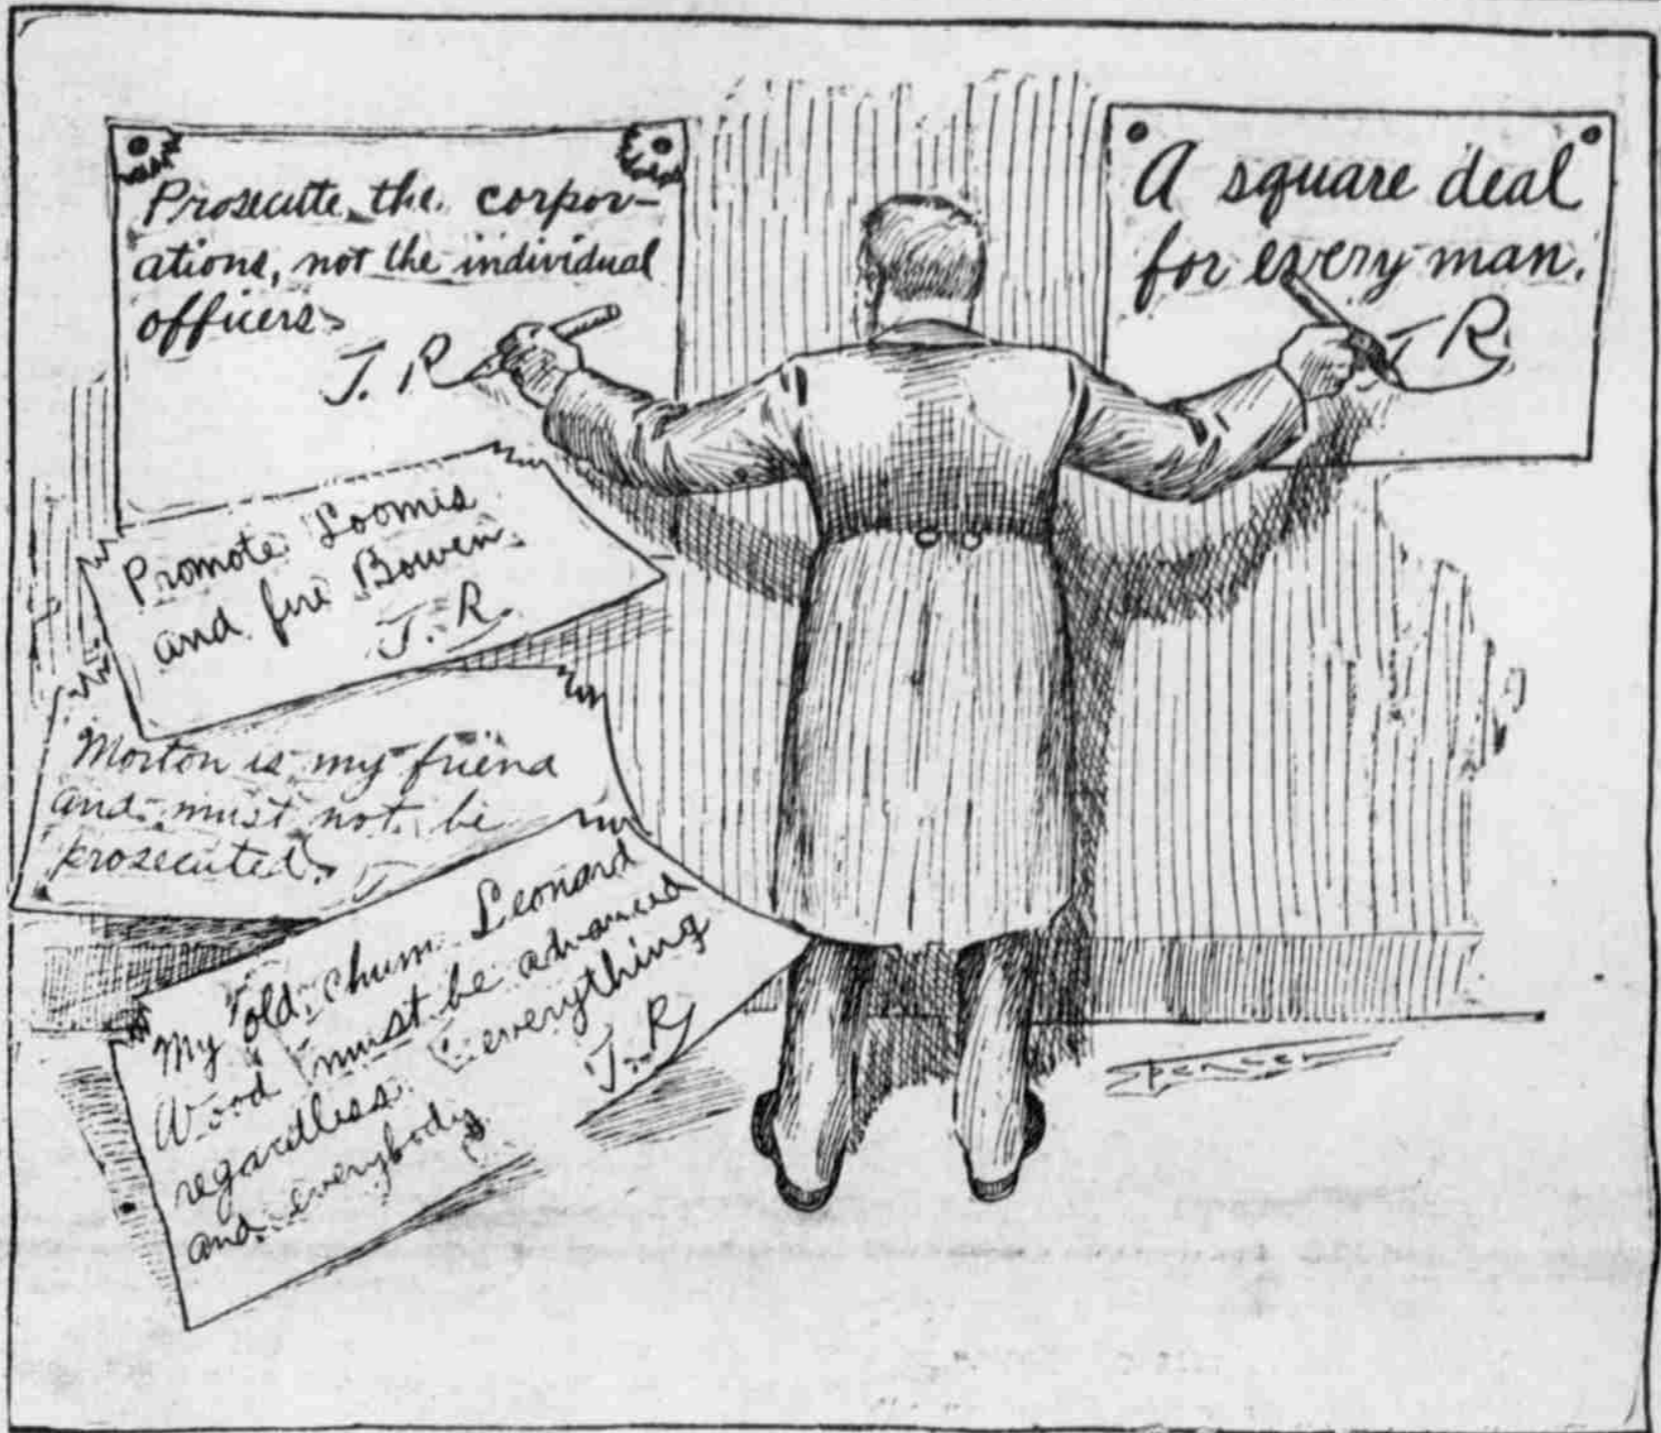 Prosecute the corpor-
ations, not the individual
officers.
T. R
A square deal
for every man.
T R
Promote Loomis
and fire Bowen.
T. R.
Morton is my friend
and must not be
prosecuted.
T
My old chum Leonard
Wood must be advanced
regardless everything
and everybody
T. R.
Spencer